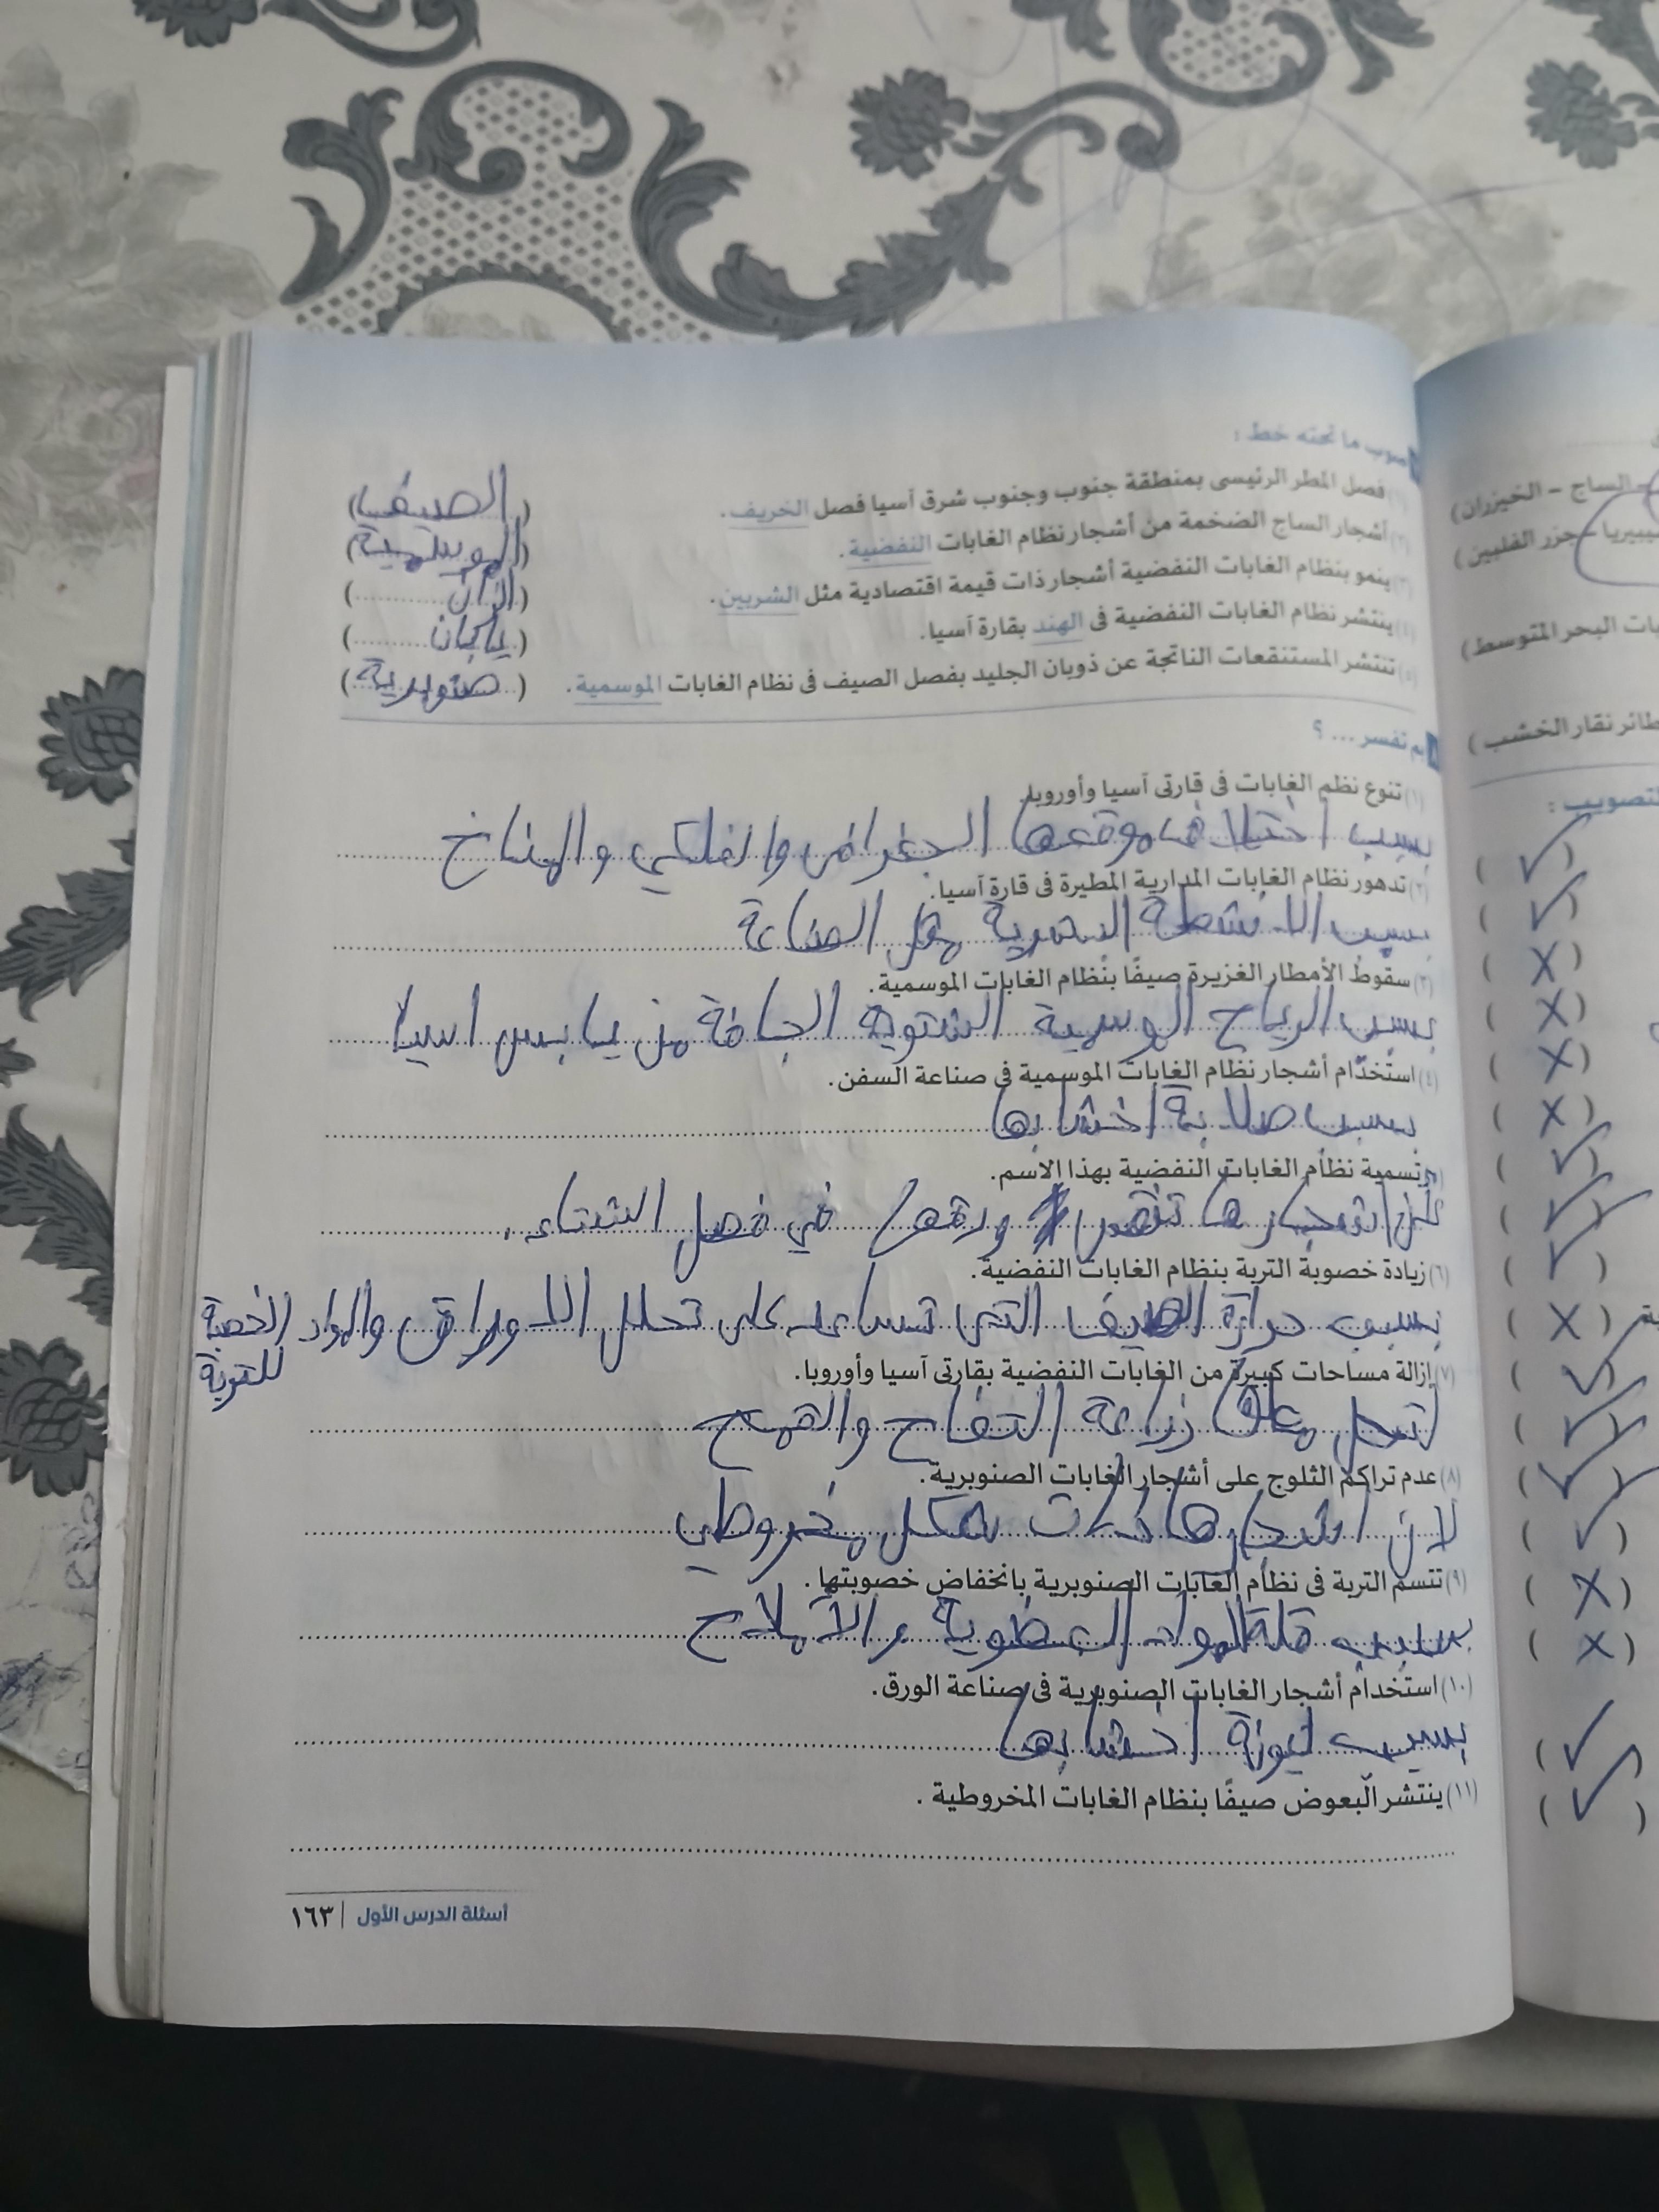 صوب ما تحته خط :
(١) فصل المطر الرئيسى بمنطقة جنوب وجنوب شرق آسيا فصل الخريف. (الصيف)
(٢) أشجار الساج الضخمة من أشجار نظام الغابات النفضية. (الموسمية)
(٣) ينمو بنظام الغابات النفضية أشجار ذات قيمة اقتصادية مثل الشربين. (الزان)
(٤) ينتشر نظام الغابات النفضية فى الهند بقارة آسيا. (يابان)
(٥) تنتشر المستنقعات الناتجة عن ذوبان الجليد بفصل الصيف فى نظام الغابات الموسمية. (صنوبرية)
بم تفسر ... ؟
(١) تنوع نظم الغابات فى قارتى آسيا وأوروبا.
بسبب اختلاف موقعها الجغرافى والفلكي والمناخ
(٢) تدهور نظام الغابات المدارية المطيرة فى قارة آسيا.
بسبب الانشطة البشرية مثل الصناعة
(٣) سقوط الأمطار الغزيرة صيفًا بنظام الغابات الموسمية.
بسبب الرياح الموسمية الشتوية الجافة من يابس اسيا
(٤) استخدام أشجار نظام الغابات الموسمية فى صناعة السفن.
بسبب صلابة اخشابها
تسمية نظام الغابات النفضية بهذا الاسم.
لان اشجارها تنفض ورقها في فصل الشتاء.
(٦) زيادة خصوبة التربة بنظام الغابات النفضية.
بسبب حرارة الصيف التى تساعد على تحلل الاوراق والمواد الخصبة
للتربة
(٧) إزالة مساحات كبيرة من الغابات النفضية بقارتى آسيا وأوروبا.
لتحل محلها زراعة التفاح والقمح
(٨) عدم تراكم الثلوج على أشجار الغابات الصنوبرية.
لان اشجارها ذات شكل مخروطي
(٩) تتسم التربة فى نظام الغابات الصنوبرية بانخفاض خصوبتها.
بسبب قلة المواد العضوية و الاملاح
(١٠) استخدام أشجار الغابات الصنوبرية فى صناعة الورق.
بسبب ليونة اخشابها
(١١) ينتشر البعوض صيفًا بنظام الغابات المخروطية .
أسئلة الدرس الأول | ١٦٣
- الساج - الخيزران)
- جزر الفلبين )
البحر المتوسط)
طائر نقار الخشب )
التصويب :